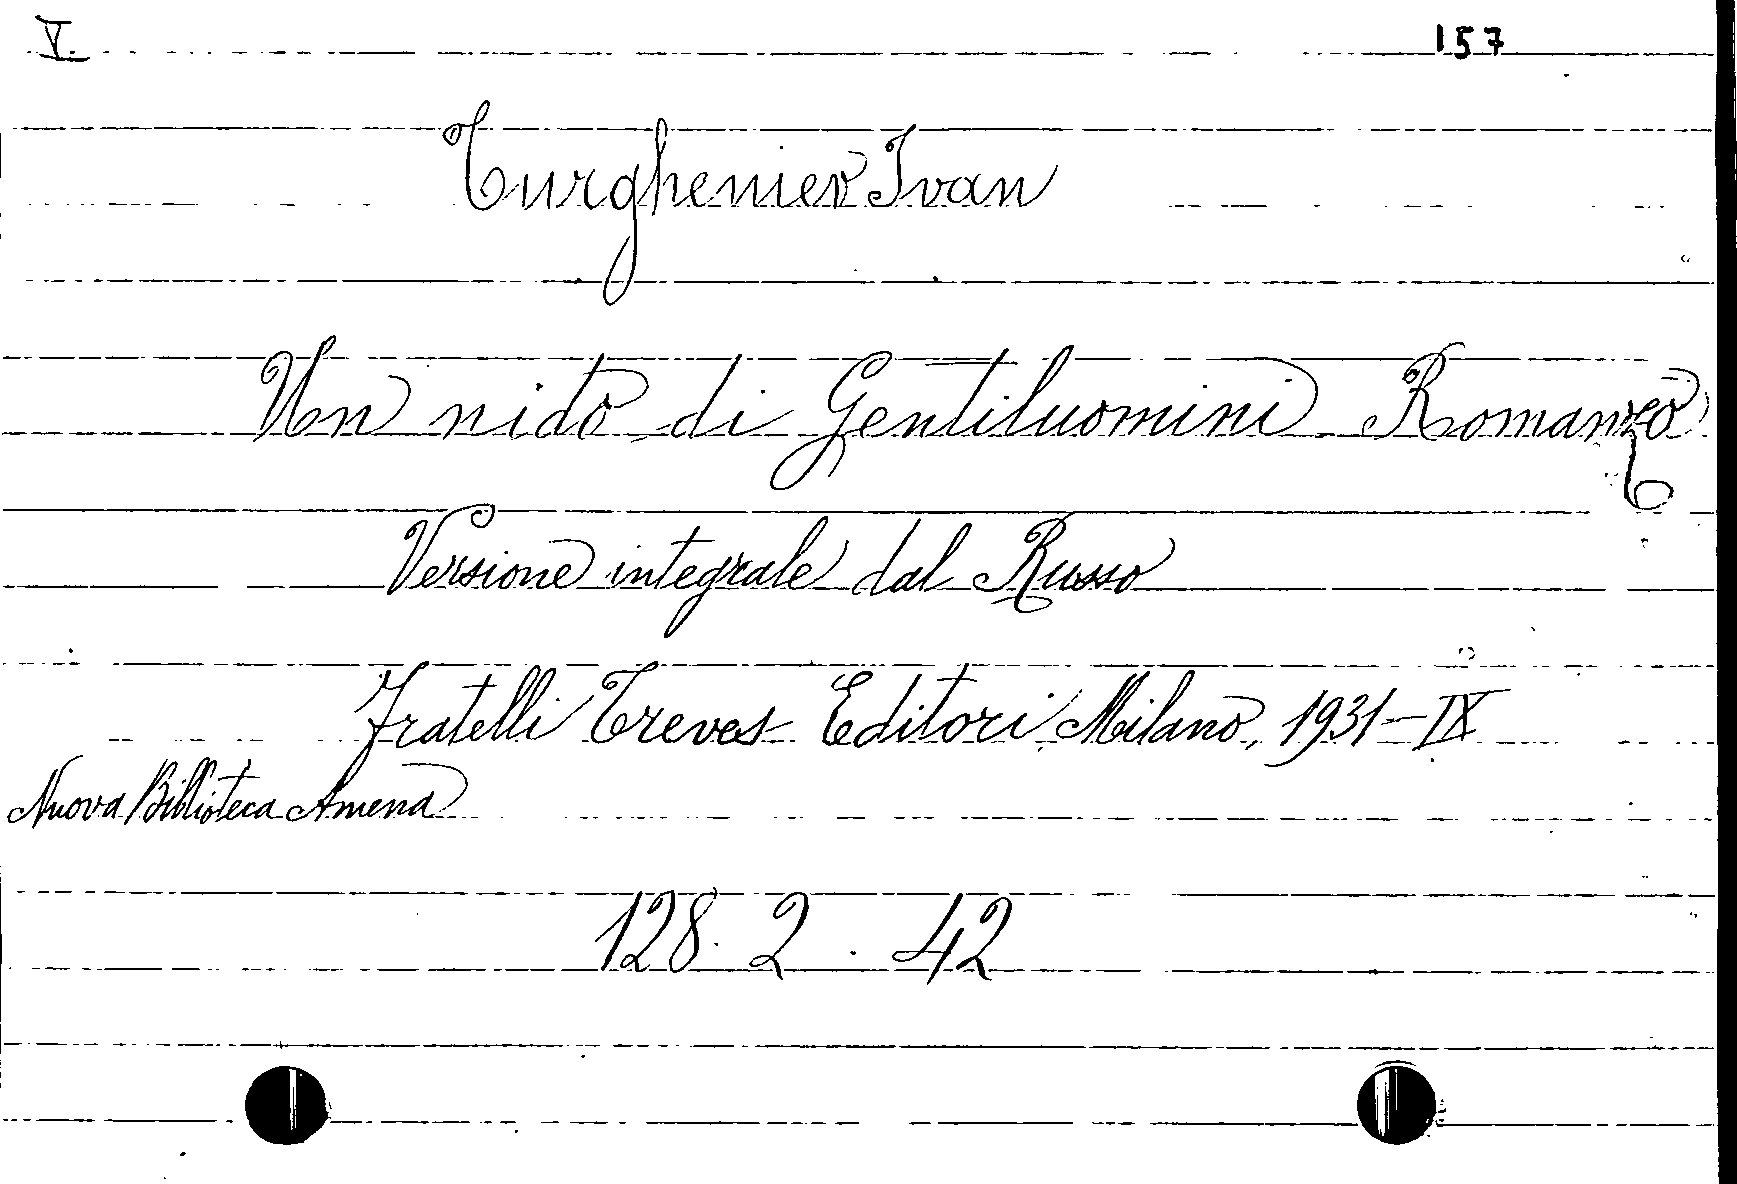 V. 157
Turgheniev Ivan
Un nido di Gentiluomini Romanzo
Versione integrale dal Russo
Fratelli Treves Editori Milano, 1931-IX
Nuova Biblioteca Amena
128. 2. 42